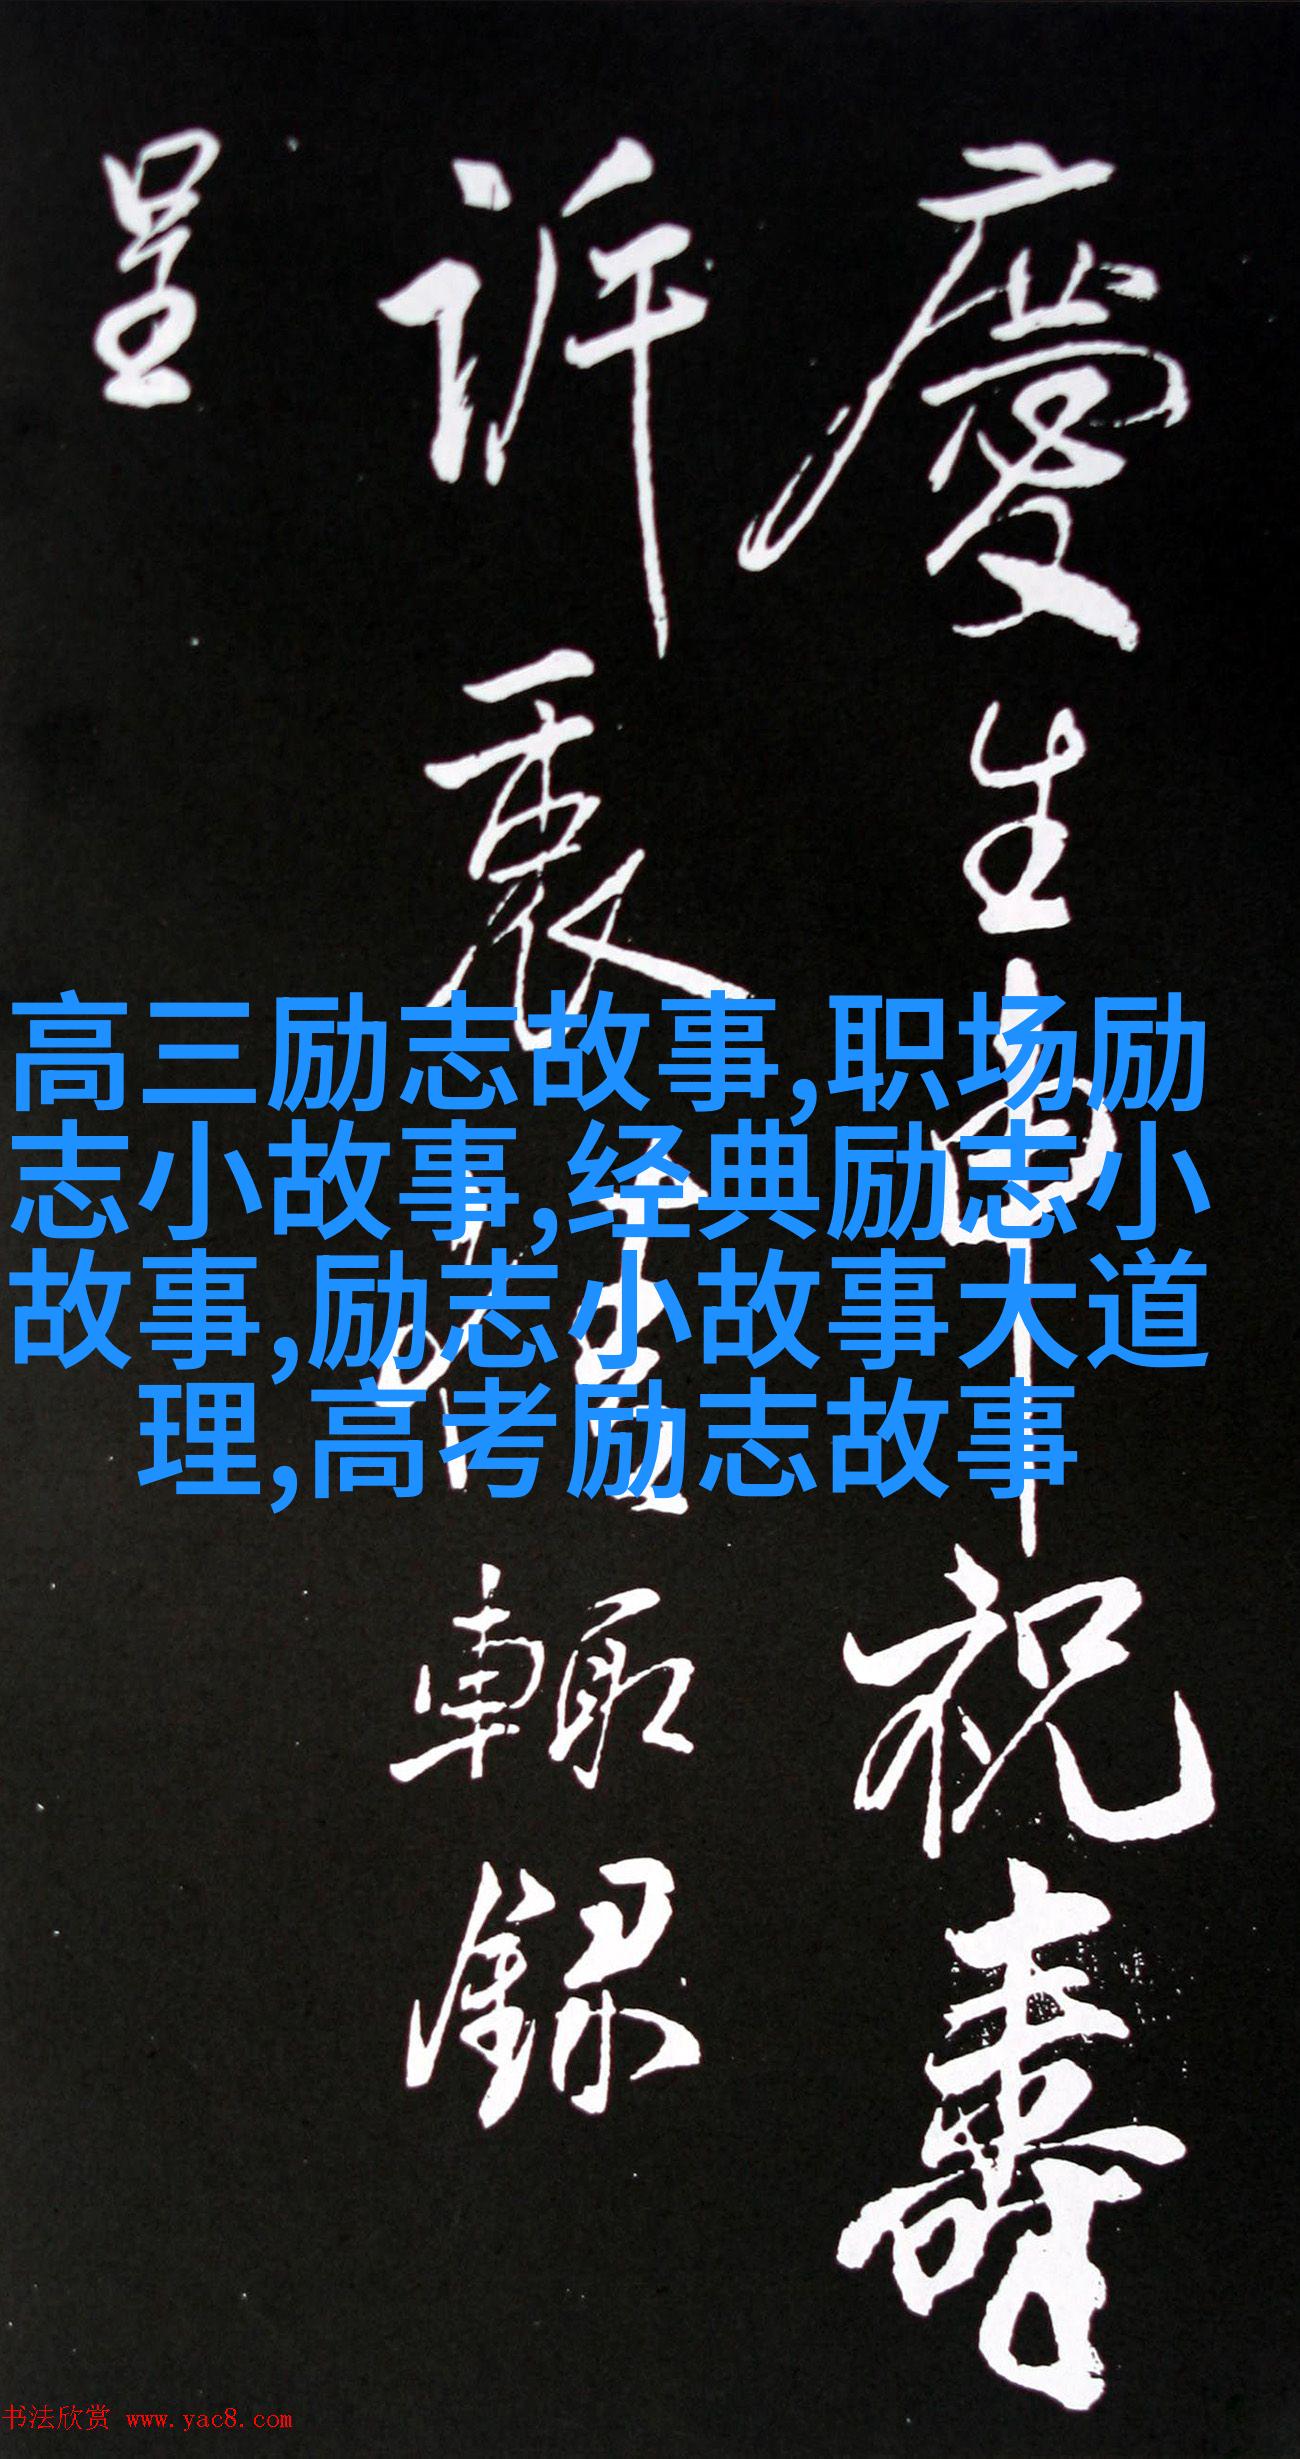 慶生申祝壽
訢衷
輙錄
呈
高三励志故事,职场励
志小故事,经典励志小
故事,励志小故事大道
理,高考励志故事
书法欣赏 www.yac8.com